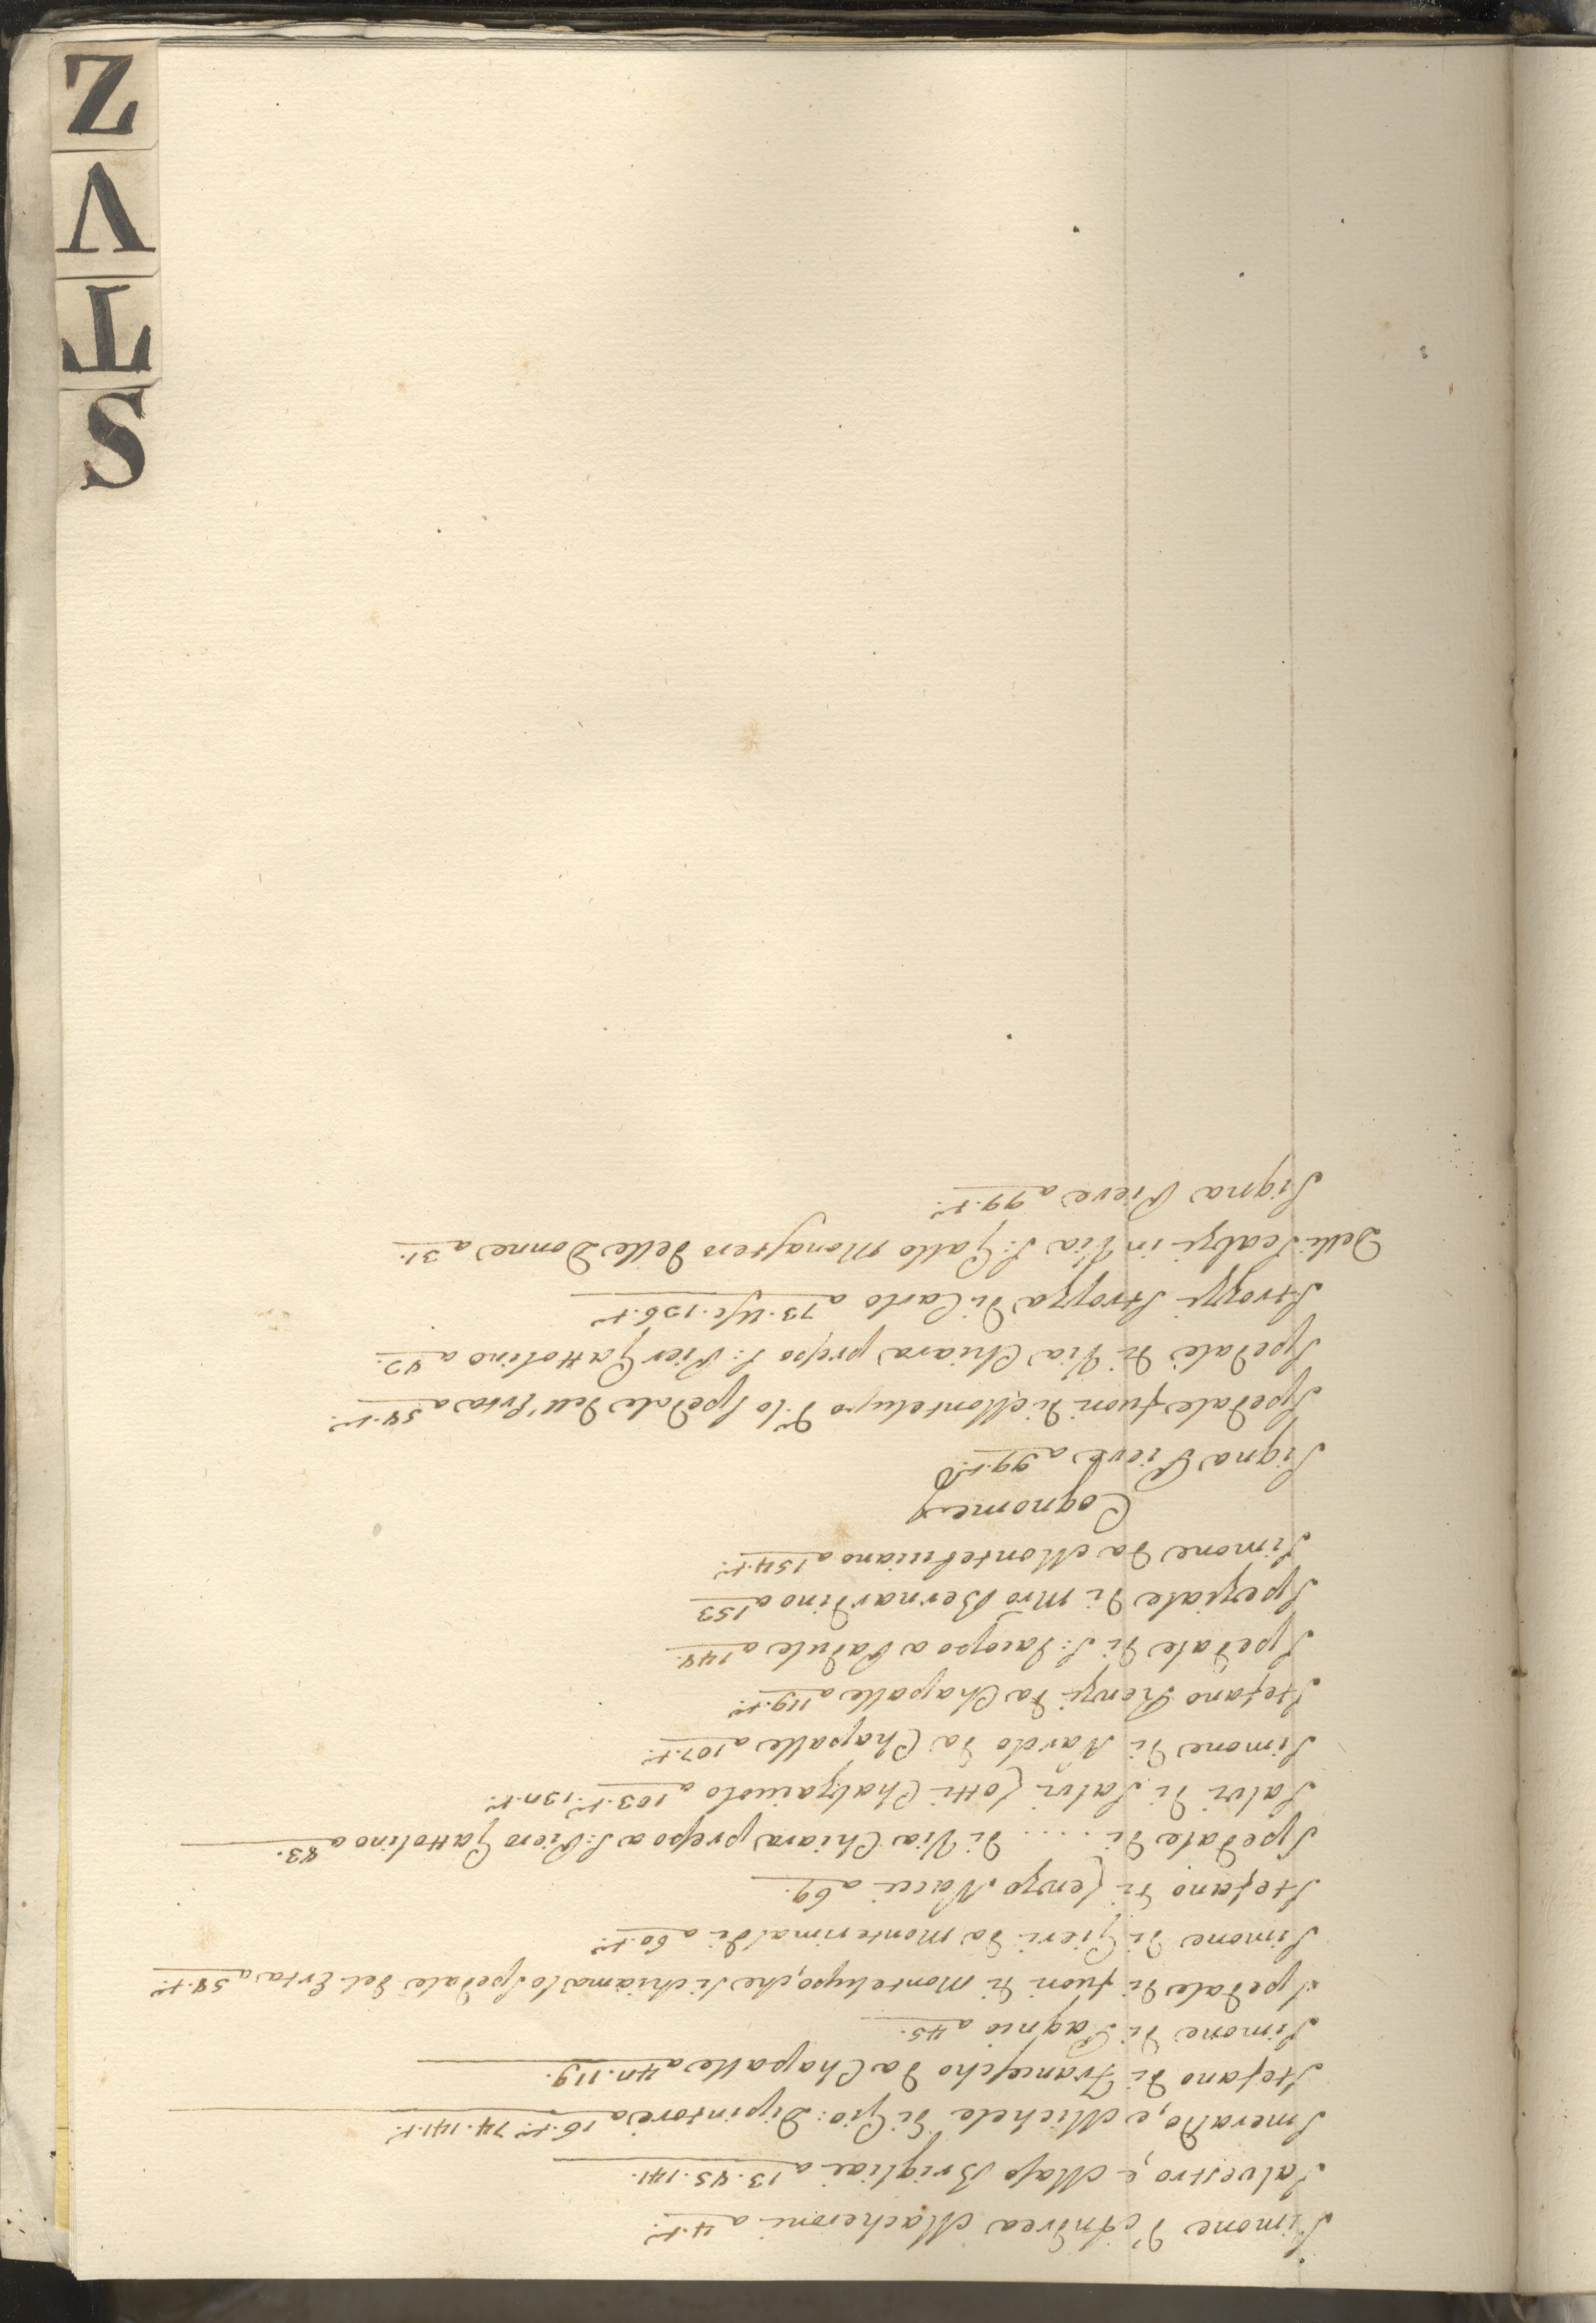 Simone d'Andrea Macheroni a 4.t.º
Salvestro, e Maso Brigliai a 13.45.141.
Smeraldo, e Michele di Gio: Dipintore a 16.t.º 74.141.t.º
Stefano di Francescho da Chapalle a 40.119.
Simone di Pagnio a 45.
Spedale di fuori di Montelupo, che si chiama lo Spedale del Erta a 58.t.º
Simone di Gieri da Monterinaldi a 60.t.º
Stefano di Lenzo Nacci a 69.
Spedale di . . . . di Via Chiara presso a S: Piero Gattolino a 83.
Salvi di Salvi Lotti Chalzaiuolo a 103.t.º 130.t.º
Simone di Nardo da Chapalle a 107.t.º
Stefano Renzi da Chapalle a 119.t.º
Spedale di S: Jacopo a Padule a 148.
Speziale di Mro Bernardino a 153
Simone da Monteluiano a 154.t.º
Cognome
Signa Pieve a 99.t.º
Spedale fuori di Montelupo d.º lo Spedale dell'Erta a 58.t.º
Spedale di Via Chiara presso S: Pier Gattolino a 82.
Strozzi Strozza di Carlo a 73. 136.t.º
Delli Scalzi in Via S: Gallo Monastero delle Donne a 31.
Signa Pieve a 99.t.º
S
T
V
Z